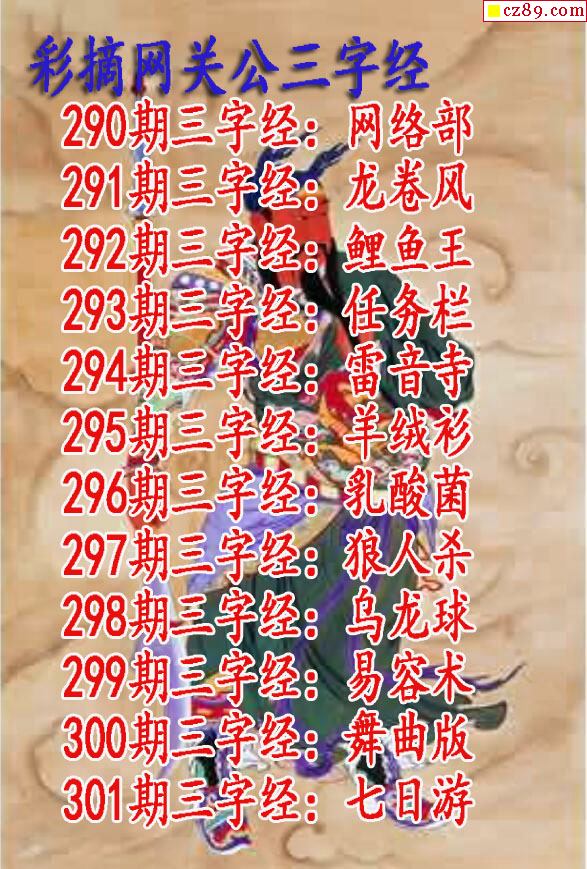 cz89.com
彩摘网关公三字经
290期三字经：网络部
291期三字经：龙卷风
292期三字经：鲤鱼王
293期三字经：任务栏
294期三字经：雷音寺
295期三字经：羊绒衫
296期三字经：乳酸菌
297期三字经：狼人杀
298期三字经：乌龙球
299期三字经：易容术
300期三字经：舞曲版
301期三字经：七日游